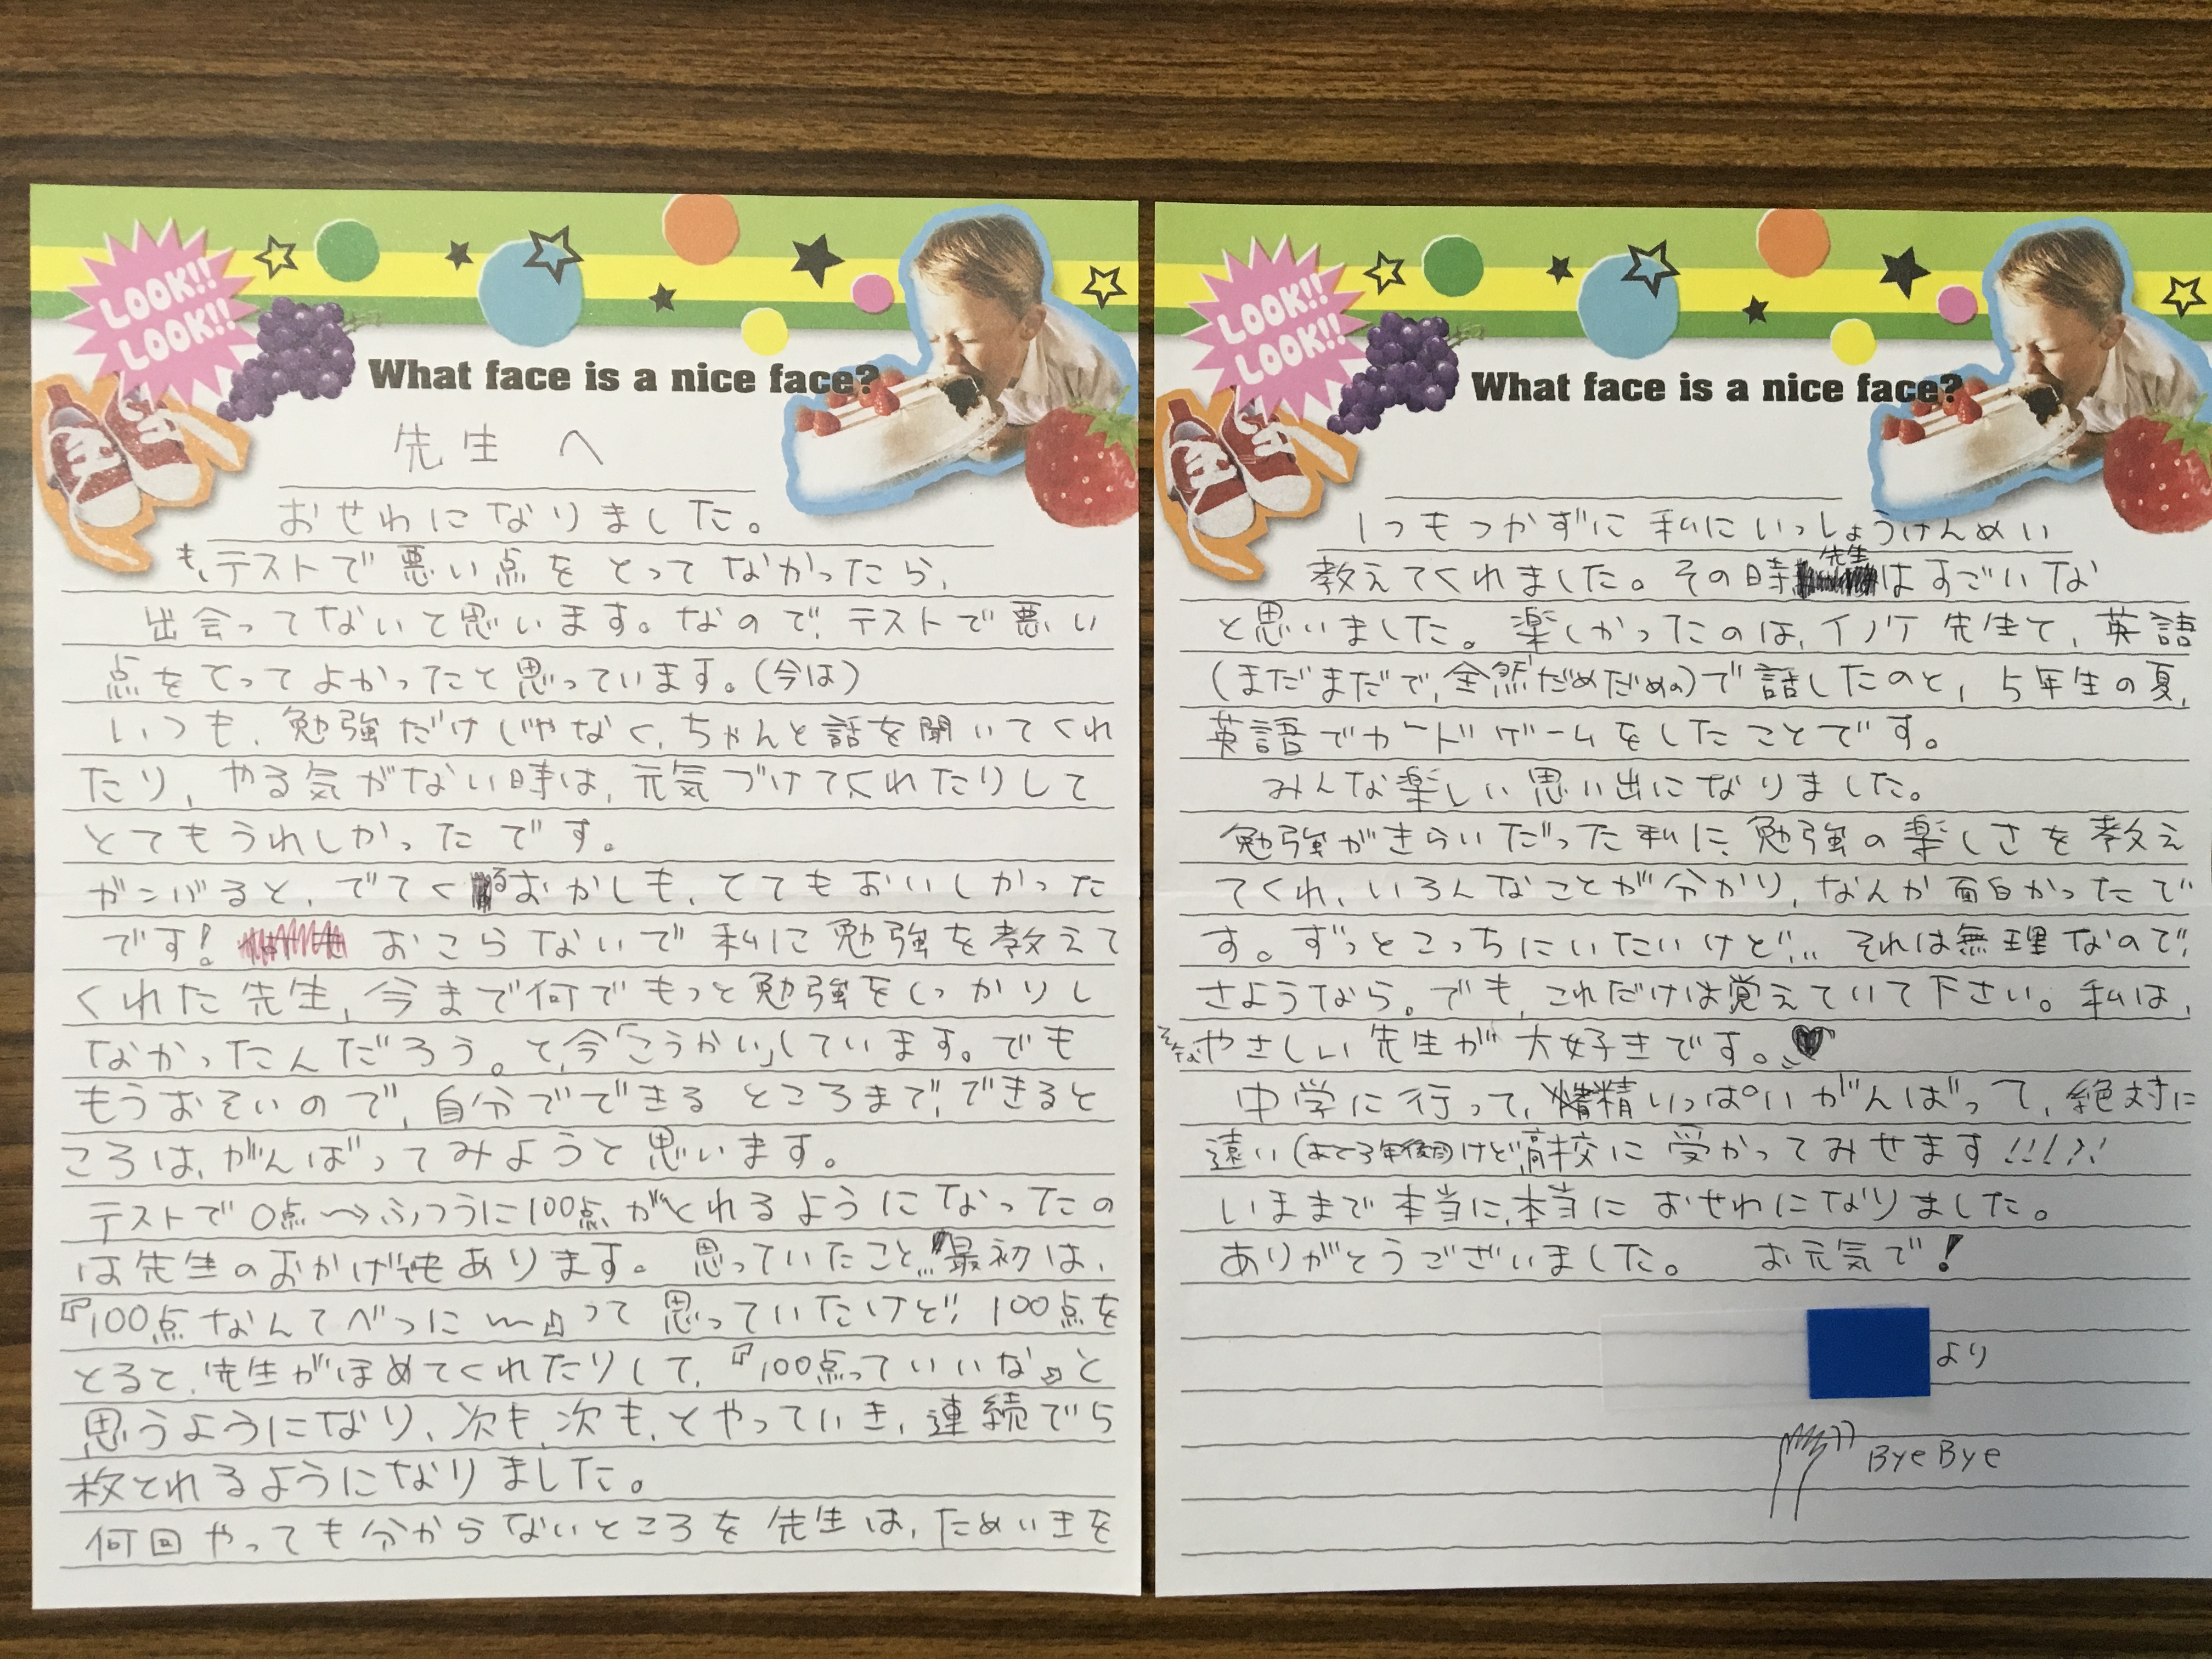 LOOK!!
LOOK!!
What face is a nice face?
先生 へ
おせわになりました。
も、テストで悪い点をとってなかったら、
出会ってないと思います。なので、テストで悪い
点をとってよかったと思っています。(今は)
いつも、勉強だけじゃなく、ちゃんと話を聞いてくれ
たり、やる気がない時は、元気づけてくれたりして
とてもうれしかったです。
ガンバると、でてくるおかしも、とてもおいしかった
です! おこらないで私に勉強を教えて
くれた先生、今まで何でもっと勉強をしっかりし
なかったんだろう。と、今「こうかい」しています。でも
もうおそいので、自分でできるところまで、できると
ころは、がんばってみようと思います。
テストで0点〜→ふつうに100点がとれるようになったの
は先生のおかげでもあります。思っていたこと…最初は、
『100点なんてべつに〜』って思っていたけど、100点を
とると、先生がほめてくれたりして、『100点っていいな』と
思うようになり、次も、次も、とやっていき、連続で5
枚とれるようになりました。
何回やっても分からないところを先生は、ためいきを
LOOK!!
LOOK!!
What face is a nice face?
1つもつかずに私にいっしょうけんめい
教えてくれました。その時先生はすごいな
と思いました。楽しかったのは、イノケ先生と、英語
(まだまだで、全然だめだめの)で話したのと、5年生の夏、
英語でカードゲームをしたことです。
みんな楽しい思い出になりました。
勉強がきらいだった私に、勉強の楽しさを教え
てくれ、いろんなことが分かり、なんか面白かったで
す。ずっとこっちにいたいけど… それは無理なので、
さようなら。でも、これだけは覚えていて下さい。私は、
そんなやさしい先生が大好きです。♥
中学に行って、精いっぱいがんばって、絶対に
遠い(あと3年後)けど高校に受かってみせます!!!!!
いままで本当に、本当におせわになりました。
ありがとうございました。 お元気で!
より
Bye Bye